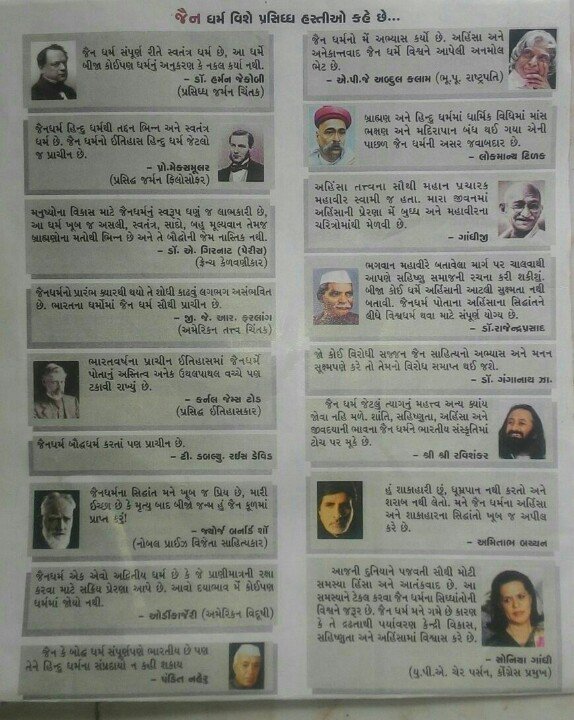 જૈન ધર્મ વિશે પ્રસિધ્ધ હસ્તીઓ કહે છે...
જૈન ધર્મ સંપૂર્ણ રીતે સ્વતંત્ર ધર્મ છે, આ ધર્મે
બીજા કોઈપણ ધર્મનું અનુકરણ કે નકલ કર્યા નથી.
- ડૉ. હર્મન જેકોબી
(પ્રસિધ્ધ જર્મન ચિંતક)
જૈનધર્મ હિન્દુ ધર્મથી તદ્દન ભિન્ન અને સ્વતંત્ર
ધર્મ છે. જૈન ધર્મનો ઈતિહાસ હિન્દુ ધર્મ જેટલો
જ પ્રાચીન છે.
- પ્રો.મેક્સમૂલર
(પ્રસિદ્ધ જર્મન ફિલોસોફર)
મનુષ્યોના વિકાસ માટે જૈનધર્મનું સ્વરૂપ ઘણું જ લાભકારી છે,
આ ધર્મ ખૂબ જ અસલી, સ્વતંત્ર, સાદો, બહુ મૂલ્યવાન તેમજ
બ્રાહ્મણોના મતોથી ભિન્ન છે અને તે બૌદ્ધોની જેમ નાસ્તિક નથી.
- ડૉ. એ. ગિરનાટ (પેરીસ)
(ફ્રેન્ચ કેળવણીકાર)
જૈનધર્મનો પ્રારંભ ક્યારથી થયો તે શોધી કાઢવું લગભગ અસંભવિત
છે. ભારતના ધર્મોમાં જૈન ધર્મ સૌથી પ્રાચીન છે.
- જી. જે. આર. ફરલાંગ
(અમેરિકન તત્ત્વ ચિંતક)
ભારતવર્ષના પ્રાચીન ઈતિહાસમાં જૈનધર્મે
પોતાનું અસ્તિત્વ અનેક ઉથલપાથલ વચ્ચે પણ
ટકાવી રાખ્યું છે.
- કર્નલ જેમ્સ ટોડ
(પ્રસિદ્ધ ઈતિહાસકાર)
જૈનધર્મ બૌદ્ધધર્મ કરતાં પણ પ્રાચીન છે.
- ટી. ડબલ્યુ. રઈસ ડેવિડ
જૈનધર્મના સિદ્ધાંત મને ખૂબ જ પ્રિય છે, મારી
ઈચ્છા છે કે મૃત્યુ બાદ બીજો જન્મ હું જૈન કુળમાં
પ્રાપ્ત કરું!
- જ્યોર્જ બર્નાર્ડ શૉ
(નોબલ પ્રાઈઝ વિજેતા સાહિત્યકાર)
જૈનધર્મ એક એવો અદ્વિતીય ધર્મ છે કે જે પ્રાણીમાત્રની રક્ષા
કરવા માટે સક્રિય પ્રેરણા આપે છે. આવો દયાભાવ મેં કોઈપણ
ધર્મમાં જોયો નથી.
- ઓર્ડીકાર્જેરી (અમેરિકન વિદૂષી)
જૈન કે બૌદ્ધ ધર્મ સંપૂર્ણપણે ભારતીય છે પણ
તેને હિન્દુ ધર્મના સંપ્રદાયો ન કહી શકાય
- પંડિત નહેરૂ
જૈન ધર્મનો મેં અભ્યાસ કર્યો છે. અહિંસા અને
અનેકાન્તવાદ જૈન ધર્મે વિશ્વને આપેલી અનમોલ
ભેટ છે.
- એ.પી.જે અબ્દુલ કલામ (ભૂ.પૂ. રાષ્ટ્રપતિ)
બ્રાહ્મણ અને હિન્દુ ધર્મમાં ધાર્મિક વિધિમાં માંસ
ભક્ષણ અને મદિરાપાન બંધ થઈ ગયા એની
પાછળ જૈન ધર્મની અસર જવાબદાર છે.
- લોકમાન્ય ટિળક
અહિંસા તત્ત્વના સૌથી મહાન પ્રચારક
મહાવીર સ્વામી જ હતા. મારા જીવનમાં
અહિંસાની પ્રેરણા મેં બુધ્ધ અને મહાવીરના
ચરિત્રોમાંથી મેળવી છે.
- ગાંધીજી
ભગવાન મહાવીરે બતાવેલા માર્ગ પર ચાલવાથી
આપણે સહિષ્ણુ સમાજની રચના કરી શકીશું.
બીજા કોઈ ધર્મે અહિંસાની આટલી સુક્ષ્મતા નથી
બતાવી. જૈનધર્મ પોતાના અહિંસાના સિદ્ધાંતને
લીધે વિશ્વધર્મ થવા માટે સંપૂર્ણ યોગ્ય છે.
- ડૉ.રાજેન્દ્રપ્રસાદ
જો કોઈ વિરોધી સજ્જન જૈન સાહિત્યનો અભ્યાસ અને મનન
સુક્ષ્મપણે કરે તો તેમનો વિરોધ સમાપ્ત થઈ જશે.
- ડૉ. ગંગાનાથ ઝા.
જૈન ધર્મ જેટલું ત્યાગનું મહત્ત્વ અન્ય ક્યાંય
જોવા નહિ મળે. શાંતિ, સહિષ્ણુતા, અહિંસા અને
જીવદયાની ભાવના જૈન ધર્મને ભારતીય સંસ્કૃતિમાં
ટોચ પર મૂકે છે.
- શ્રી શ્રી રવિશંકર
હું શાકાહારી છું, ધૂમ્રપાન નથી કરતો અને
શરાબ નથી લેતો. મને જૈન ધર્મના અહિંસા
અને શાકાહારના સિદ્ધાંતો ખૂબ જ અપીલ
કરે છે.
- અમિતાભ બચ્ચન
આજની દુનિયાને પજવતી સૌથી મોટી
સમસ્યા હિંસા અને આતંકવાદ છે. આ
સમસ્યાને ટેકલ કરવા જૈન ધર્મના સિધ્ધાંતોની
વિશ્વને જરૂર છે. જૈન ધર્મ મને ગમે છે કારણ
કે તે દ્રઢતાથી પર્યાવરણ કેન્દ્રી વિકાસ,
સહિષ્ણુતા અને અહિંસામાં વિશ્વાસ કરે છે.
- સોનિયા ગાંધી
(યુ.પી.એ. ચેર પર્સન, કોંગ્રેસ પ્રમુખ)